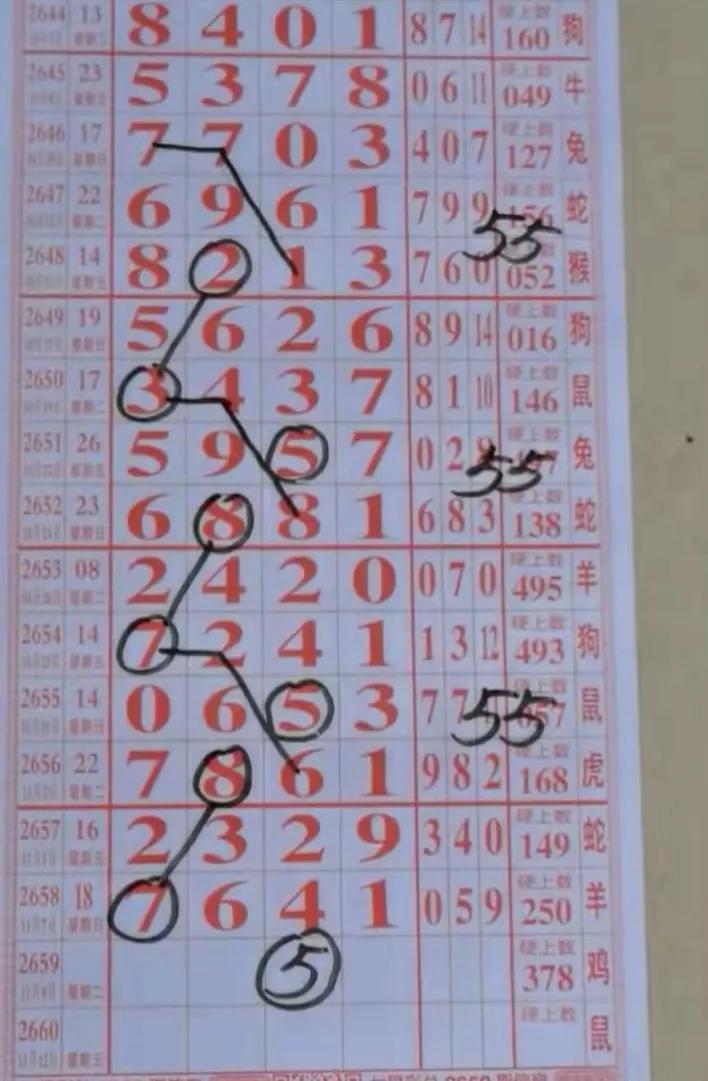 2644 13 8 4 0 1 8 7 14 硬上数 160 狗
2645 23 5 3 7 8 0 6 11 硬上数 049 牛
2646 17 7 7 0 3 4 0 7 硬上数 127 兔
2647 22 6 9 6 1 7 9 9 硬上数 156 蛇
55
2648 14 8 2 1 3 7 6 0 052 猴
2649 19 5 6 2 6 8 9 14 硬上数 016 狗
2650 17 3 4 3 7 8 1 10 硬上数 146 鼠
2651 26 5 9 5 7 0 2 硬上数 兔
55
2652 23 6 8 8 1 6 8 3 硬上数 138 蛇
2653 08 2 4 2 0 0 7 0 硬上数 495 羊
2654 14 7 2 4 1 1 3 12 硬上数 493 狗
2655 14 0 6 5 3 7 7 硬上数 鼠
55
2656 22 7 8 6 1 9 8 2 硬上数 168 虎
2657 16 2 3 2 9 3 4 0 硬上数 149 蛇
2658 18 7 6 4 1 0 5 9 硬上数 250 羊
2659 5 硬上数 378 鸡
2660 硬上数 鼠